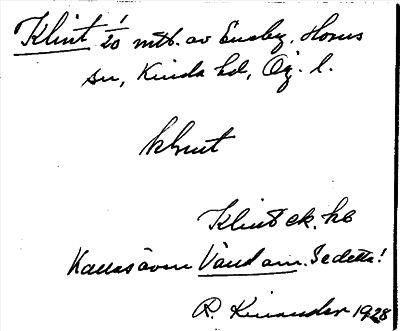 Klint 1/20 mtl. av Ensby, Horns
sn, Kinda hd, Ög. l.
klınt
Klint ek. kb
Kallas även Vänd om. Se detta!
R. Kinander 1928